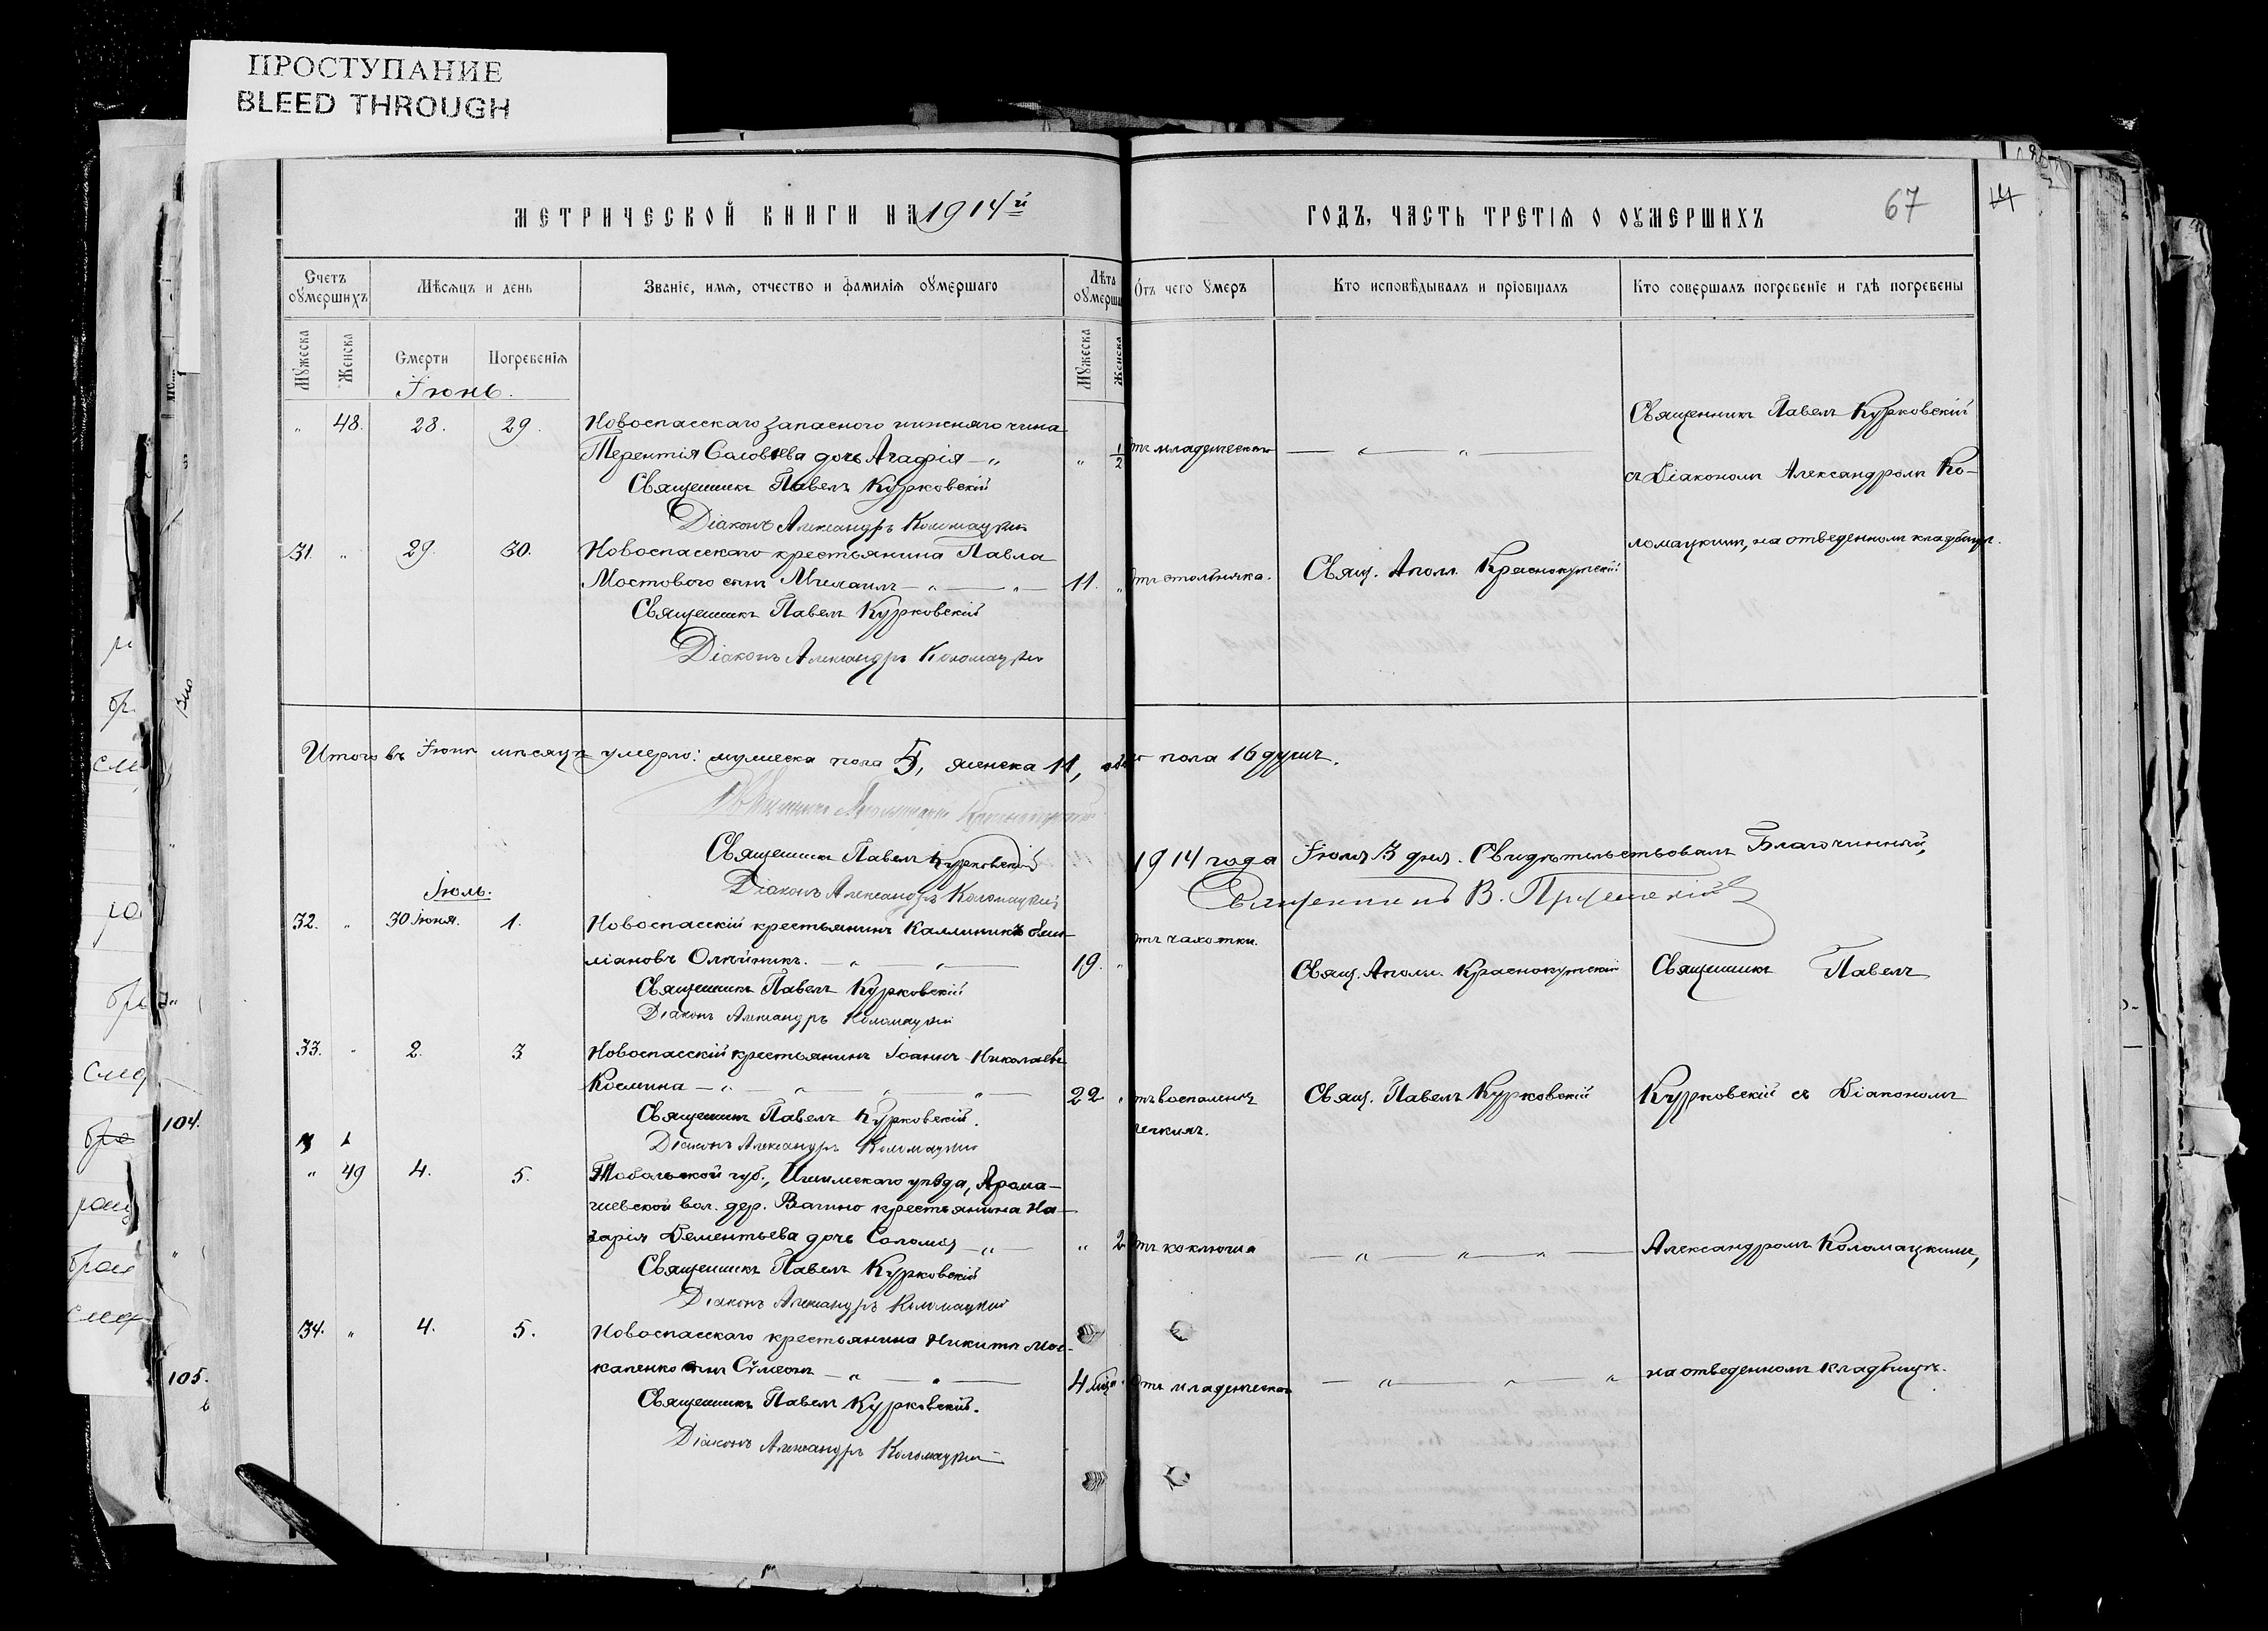 ПРОСТУПАНИЕ
BLEED THROUGH
МЕТРИЧЕСКОЙ КНИГИ НА 1914й
ГОДЪ, ЧАСТЬ ТРЕТІЯ О ОУМЕРШИХЪ
67
14
Счетъ оумершихъ
Мѣсяцъ и день
Званіе, имя, отчество и фамилія оумершаго
Лѣта оумерша
Отъ чего умеръ
Кто исповѣдывалъ и пріобщалъ
Кто совершалъ погребеніе и гдѣ погребены
Мужеска
Женска
Смерти
Погребенія
Мужеска
Женска
Іюнь.
„ 48. 28. 29. Новоспасскаго запаснаго нижняго чина
Терентія Соловьева дочь Агафія — „ „ 1/2 отъ младенческой — „ — „
Священникъ Павелъ Курковскій
Діаконъ Александръ Коломацкій
Священникъ Павелъ Курковскій
съ Діакономъ Александромъ Ко-
ломацкимъ, на отведенномъ кладбищѣ.
31. „ 29. 30. Новоспасскаго крестьянина Павла
Мостового сынъ Михаилъ — „ — „ — 11. „ отъ столбняка. Свящ. Аполл. Краснокутскій
Священникъ Павелъ Курковскій
Діаконъ Александръ Коломацкій
Итого въ Іюнѣ мѣсяцѣ умерло: мужеска пола 5, женска 11, обоего пола 16 душъ.
Священникъ Павелъ Курковскій
Діаконъ Александръ Коломацкій
1914 года Іюля 3 дня. Свидѣтельствовалъ Благочинный,
Священникъ В.
Іюль.
32. „ 30 Іюня. 1. Новоспасскій крестьянинъ Каллиникъ Эми-
ліановъ Олѣйникъ. — „ „ — 19. „ отъ чахотки. Свящ. Аполл. Краснокутскій Священникъ Павелъ
Священникъ Павелъ Курковскій
Діаконъ Александръ Коломацкій
33. „ 2. 3 Новоспасскій крестьянинъ Іоаннъ Николаевъ
Космина — „ — „ — „ — „ — 22 „ отъ воспаленія Свящ. Павелъ Курковскій Курковскій съ Діакономъ
легкихъ.
Священникъ Павелъ Курковскій.
Діаконъ Александръ Коломацкій
„ 49 4. 5. Тобольской губ., Ишимскаго уѣзда, Арома-
шевской вол. дер. Вагино крестьянина На-
зарія Дементьева дочь Соломія — „ — „ 2 отъ коклюша — „ — „ — „ — Александромъ Коломацкимъ,
Священникъ Павелъ Курковскій
Діаконъ Александръ Коломацкій
34. „ 4. 5. Новоспасскаго крестьянина Никиты Мос-
каленко сынъ Сѵмеонъ — „ — „ — 4 мѣс. Отъ младенческой — „ — „ „ на отведенномъ кладбищѣ.
Священникъ Павелъ Курковскій.
Діаконъ Александръ Коломацкій
104.
105.